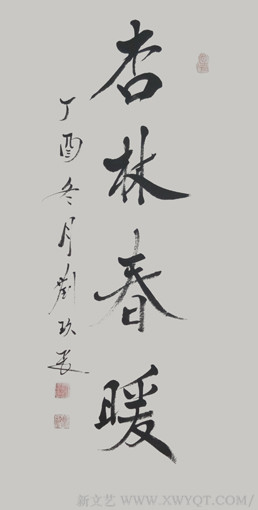 杏林春暖
丁酉冬月劉玖長
新文艺 WWW.XWYQT.COM/